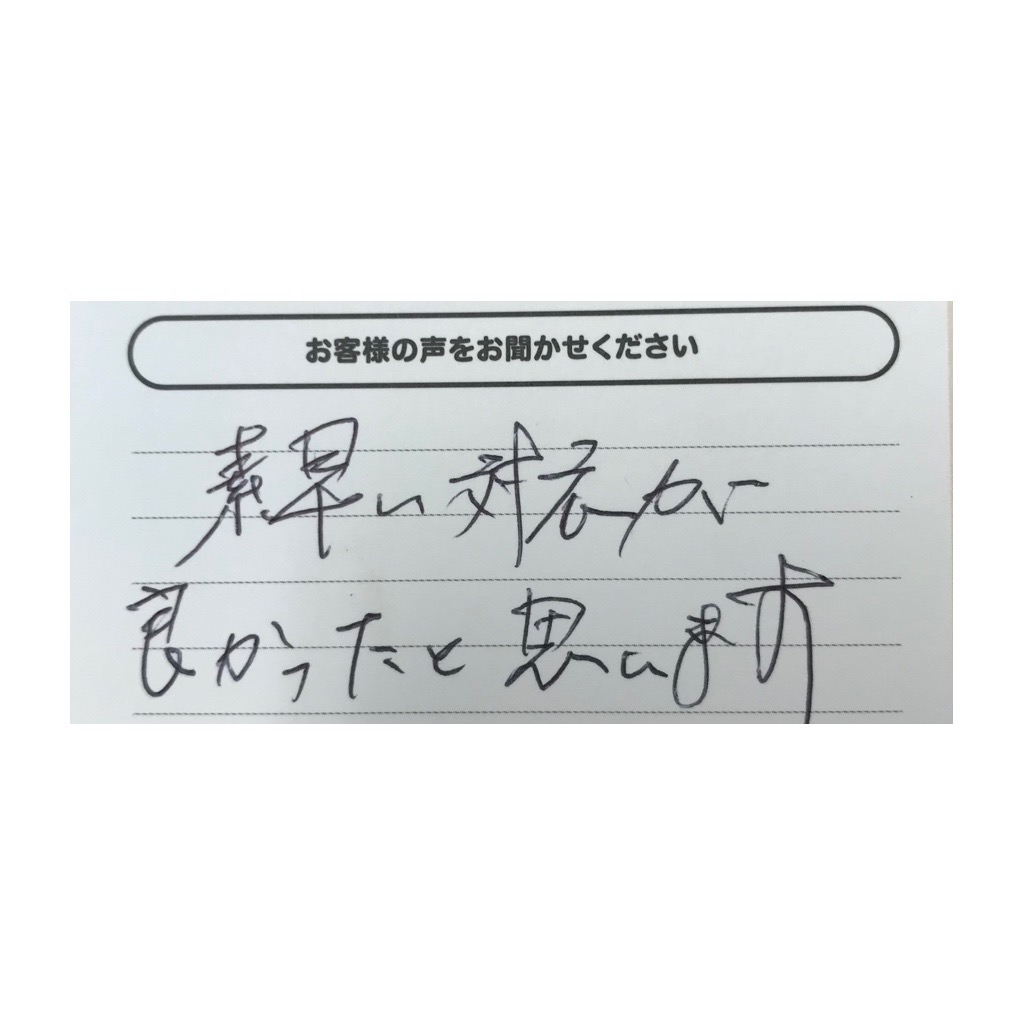 お客様の声をお聞かせください
素早い対応が
良かったと思います